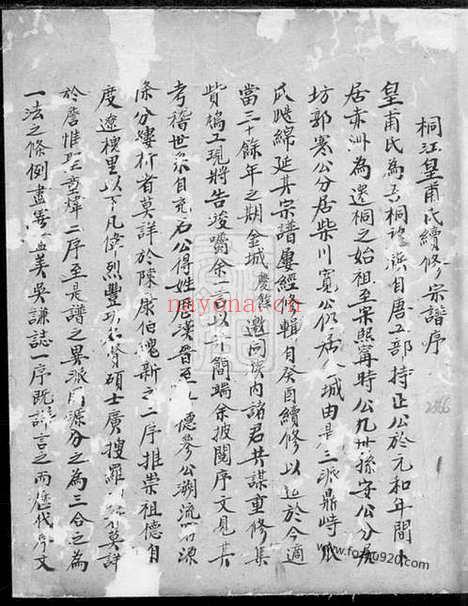 桐江皇甫氏續修宗譜序
皇甫氏為吾桐望族自唐工部持正公於元和年間卜
居赤洲為遷桐之始祖至宋熙寧時公九世孫安公分居
坊郭寒公分居柴川寬公仍居城由是三派鼎峙
氏姓綿延其宗譜屢經修輯自癸酉續修以迄於今適
當三十餘年之期金城慶餘邀同族内諸君共謀重修集
貲梓工現將告竣囑余言以弁簡端余披閱序文見其
考稽世系自充石公得姓後漢晉至德參公溯流窮源
條分縷析者莫詳於陳康伯魏新之二序推崇祖德自
度遼槐里以下凡偉烈豐功名賢碩士廣搜羅莫詳
於詹惟聖童煒二序至是譜之異派同源分之為三合之為
一法之條例盡善盡美吳謙誌一序既詳言之而歷代序文
286
nayona.cn
www.fozhu920.com